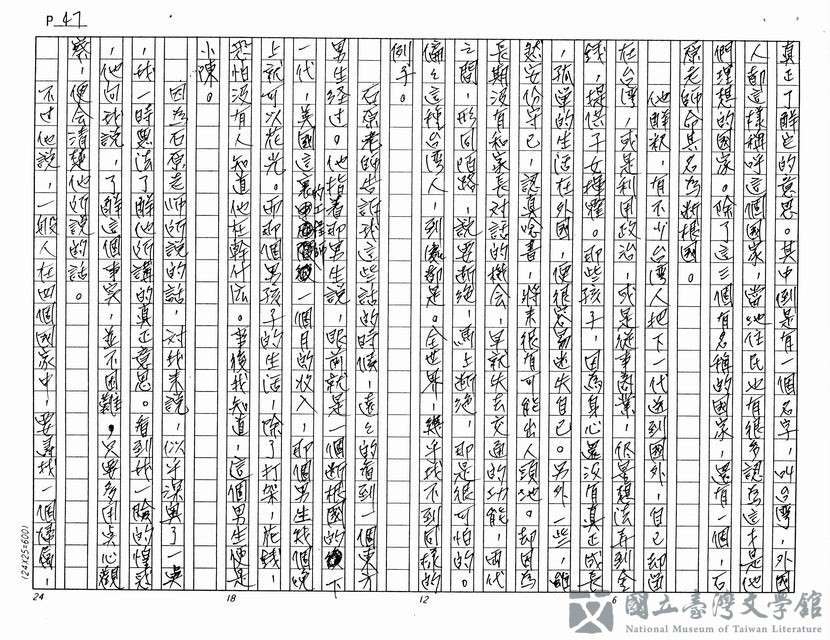 P 47
真正了解它的意思。其中倒是有一個名字,叫台灣,外國
人都這樣稱呼這個國家,當地住民也有很多認為這才是他
們理想的國家。除了這三個有名稱的國家,還有一個,石
原老師給其名為斷根國。
他解釋,有不少台灣人把下一代送到國外,自己卻留
在台灣,或是利用政治,或是從事商業,仍是想法弄到金
錢,提供子女揮霍。那些孩子,因為身心還沒有真正成長
,孤單的生活在外國,便很容易迷失自己。另外一些,雖
然安份守己,認真唸書,將來很有可能出人頭地。却因為
長期沒有和家長對話的機会,早就失去交通的功能,兩代
之間,形同陌路,說要断绝,馬上断绝,那是很可怕的。
偏偏這種台灣人,到處都是。全世界,幾乎找不到同樣的
例子。
石原老師告訴我這些話的時候,遠遠的看到一個東方
男生经过。他指着那男生說,眼前就是一個断根國的下
一代,美國這裏的工程師一個月的收入,那個男生幾個晚
上就可以花光。而那個男孩子的生活,除了打架,花錢,
恐怕沒有人知道他在幹什広。事後我知道,這個男生便是
小陳。
因為石原老师所說的話,对我来說,似乎深奥了一點
,我一時無法了解他所講的真正意思。看到我一臉的惶惑
,他向我說,了解這個事实,並不困難,只要多用点心觀
察,便会清楚他所說的話。
不过他說,一般人在四個國家中,要尋找一個據居,
(24X25=600)
24 18 12 6
國立臺灣文學館
National Museum of Taiwan Literature